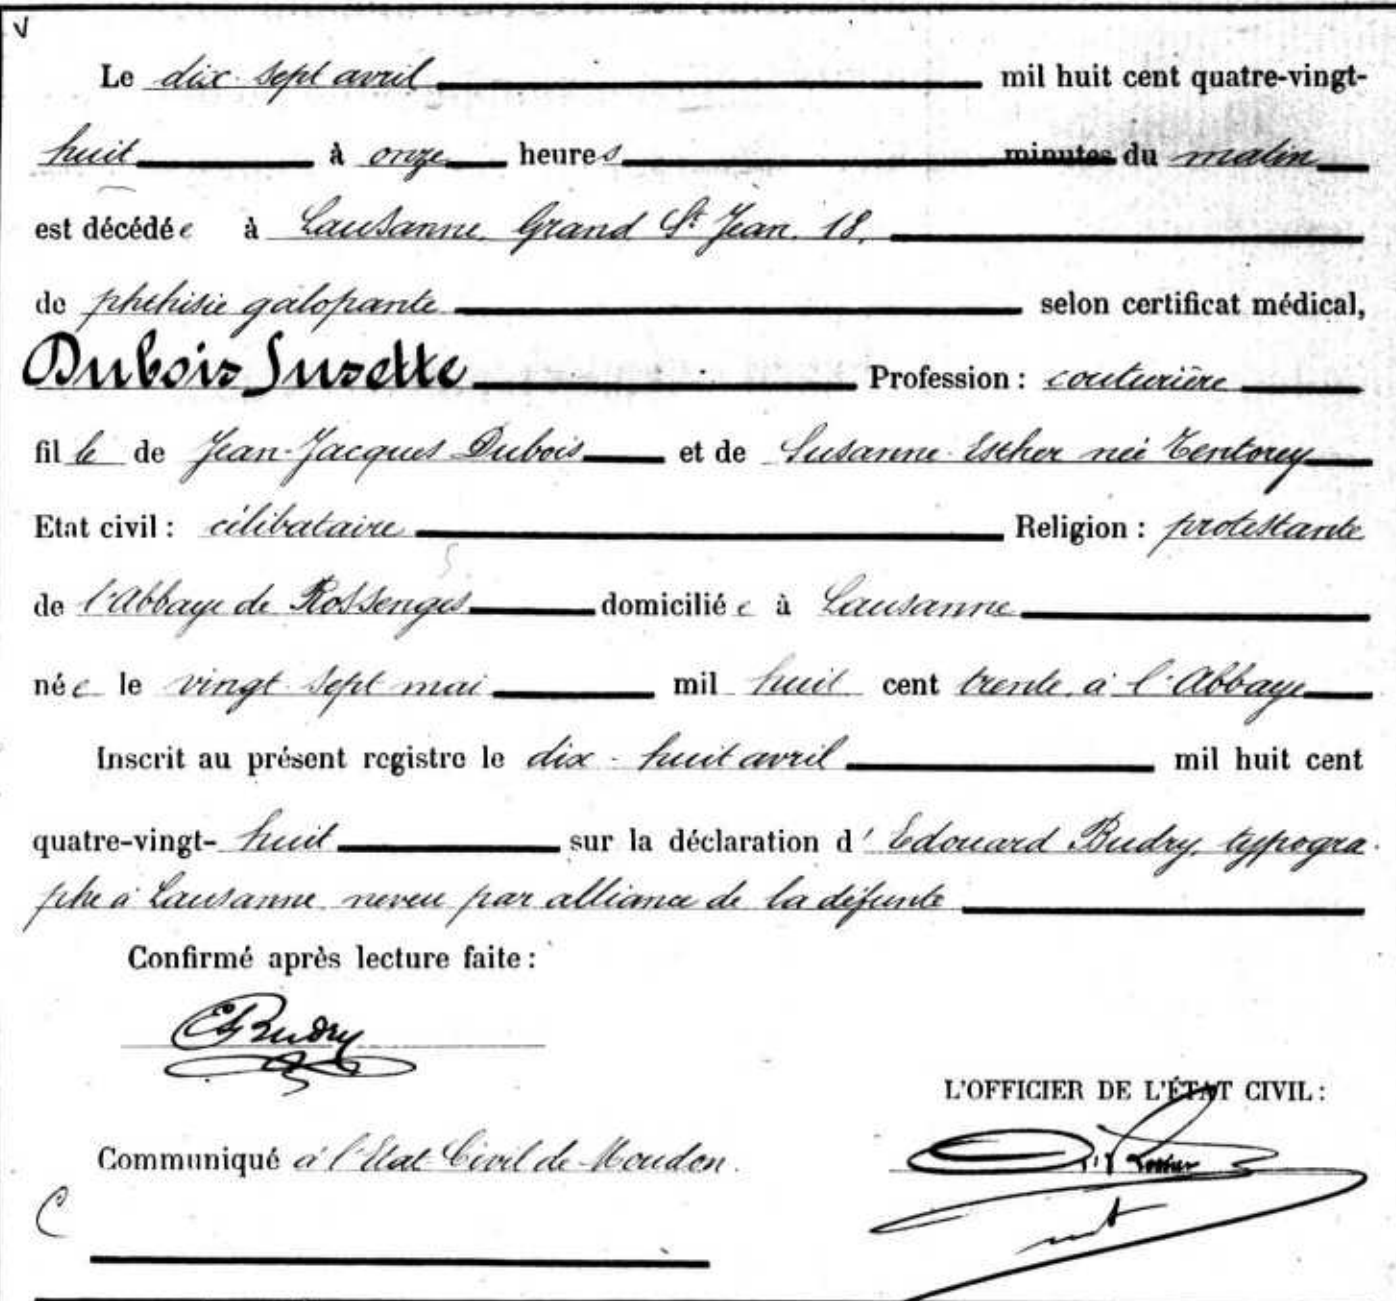 V
Le dix-sept avril mil huit cent quatre-vingt-
huit à onze heures minutes du matin
est décédée à Lausanne, Grand St Jean, 18,
de phthisie galopante selon certificat médical,
Dubois Susette Profession: couturière
fille de Jean-Jacques Dubois et de Susanne-Esther née Tentorey
Etat civil: célibataire Religion: protestante
de l'Abbaye de Rossenges domiciliée à Lausanne
née le vingt-sept mai mil huit cent trente, à l'Abbaye
Inscrit au présent registre le dix-huit avril mil huit cent
quatre-vingt-huit sur la déclaration d'Edouard Budry, typogra-
phe à Lausanne, neveu par alliance de la défunte
Confirmé après lecture faite:
E Budry
L'OFFICIER DE L'ÉTAT CIVIL:
Communiqué à l'Etat-Civil de Moudon.